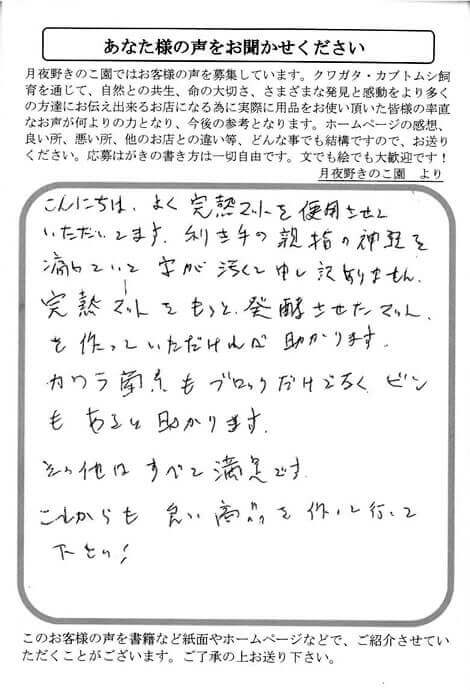 あなた様の声をお聞かせください
月夜野きのこ園ではお客様の声を募集しています。クワガタ・カブトムシ飼
育を通じて、自然との共生、命の大切さ、さまざまな発見と感動をより多く
の方達にお伝え出来るお店になる為に実際に用品をお使い頂いた皆様の率直
なお声が何よりの力となり、今後の参考となります。ホームページの感想、
良い所、悪い所、他のお店との違い等、どんな事でも結構ですので、お送り
ください。応募はがきの書き方は一切自由です。文でも絵でも大歓迎です！
月夜野きのこ園　より
こんにちは、よく 完熟マットを使用させて
いただいてます。利き手の親指の神経を
痛めていて 字が汚くて申し訳ありません。
完熟マットをもっと発酵させたマット、
を作っていただければ 助かります。
カワラ菌糸もブロックだけでなく ビン
も あると 助かります。
その他は すべて 満足です。
これからも 良い 商品を 作って行って
下さい！
このお客様の声を書籍など紙面やホームページなどで、ご紹介させてい
ただくことがございます。ご了承の上お送り下さい。